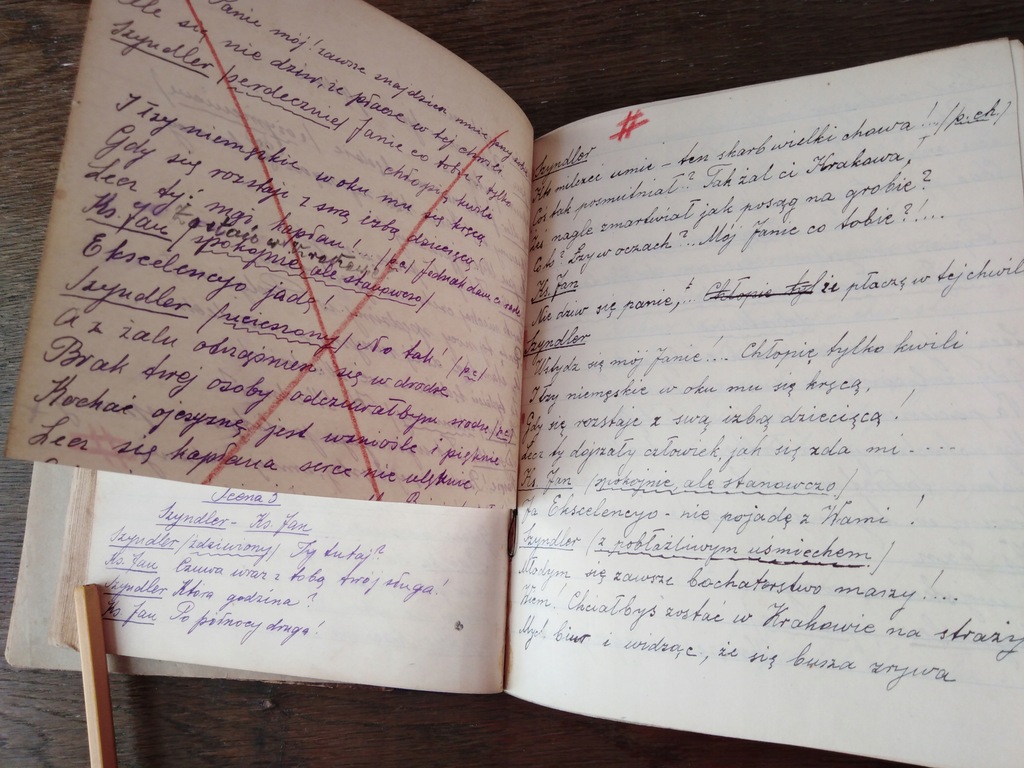 Panie mój! zawsze znajdziesz mnie przy sobie
Ale się nie dziw, że płaczę w tej chwili
Szyndler /serdecznie/ Janie co tobie? tylko
chłopię kwili
I łzy niemęskie w oku mu się kręcą
Gdy się rozstaje z swą izbą dziecięcą
Lecz ty, mój kapłan!
Ks. Jan /spokojnie ale stanowczo/
Ekscelencyo jadę!
Szyndler /ucieszony/ No tak! /pc/
A z żalu obeschniesz się w drodze
Brak twej osoby odczuwałbym srodze /pc/
Kochać ojczyznę jest wzniośle i pięknie!
Lecz się kapłana serce nie ulęknie
Scena 5
Szyndler - Ks. Jan
Szyndler /zdziwiony/ Ty tutaj?
Ks. Jan Czuwa wraz z tobą twój sługa!
Szyndler Która godzina?
Ks. Jan Po północy druga!
#
Szyndler
Kto milczeć umie - ten skarb wielki chowa!.. /p.ch/
Coś tak posmutniał? Tak żal ci Krakowa,
Żeś nagle zmartwiał jak posąg na grobie?
Co to? Łzy w oczach?.. Mój Janie co tobie?!....
Ks. Jan
Nie dziw się panie,.. Chłopię tyl że płaczę w tej chwili
Szyndler
Wstydź się mój Janie!... Chłopię tylko kwili
I łzy niemęskie w oku mu się kręcą,
Gdy się rozstaje z swą izbą dziecięcą!
Lecz ty dojrzały człowiek, jak się zda mi.....
Ks. Jan /spokojnie, ale stanowczo/
Ja Ekscelencyo - nie pojadę z Wami!
Szyndler /z pobłażliwym uśmiechem/
Młodym się zawsze bochaterstwo marzy!....
Wiem! Chciałbyś zostać w Krakowie na straży
Mych biur i widząc, że się burza zrywa